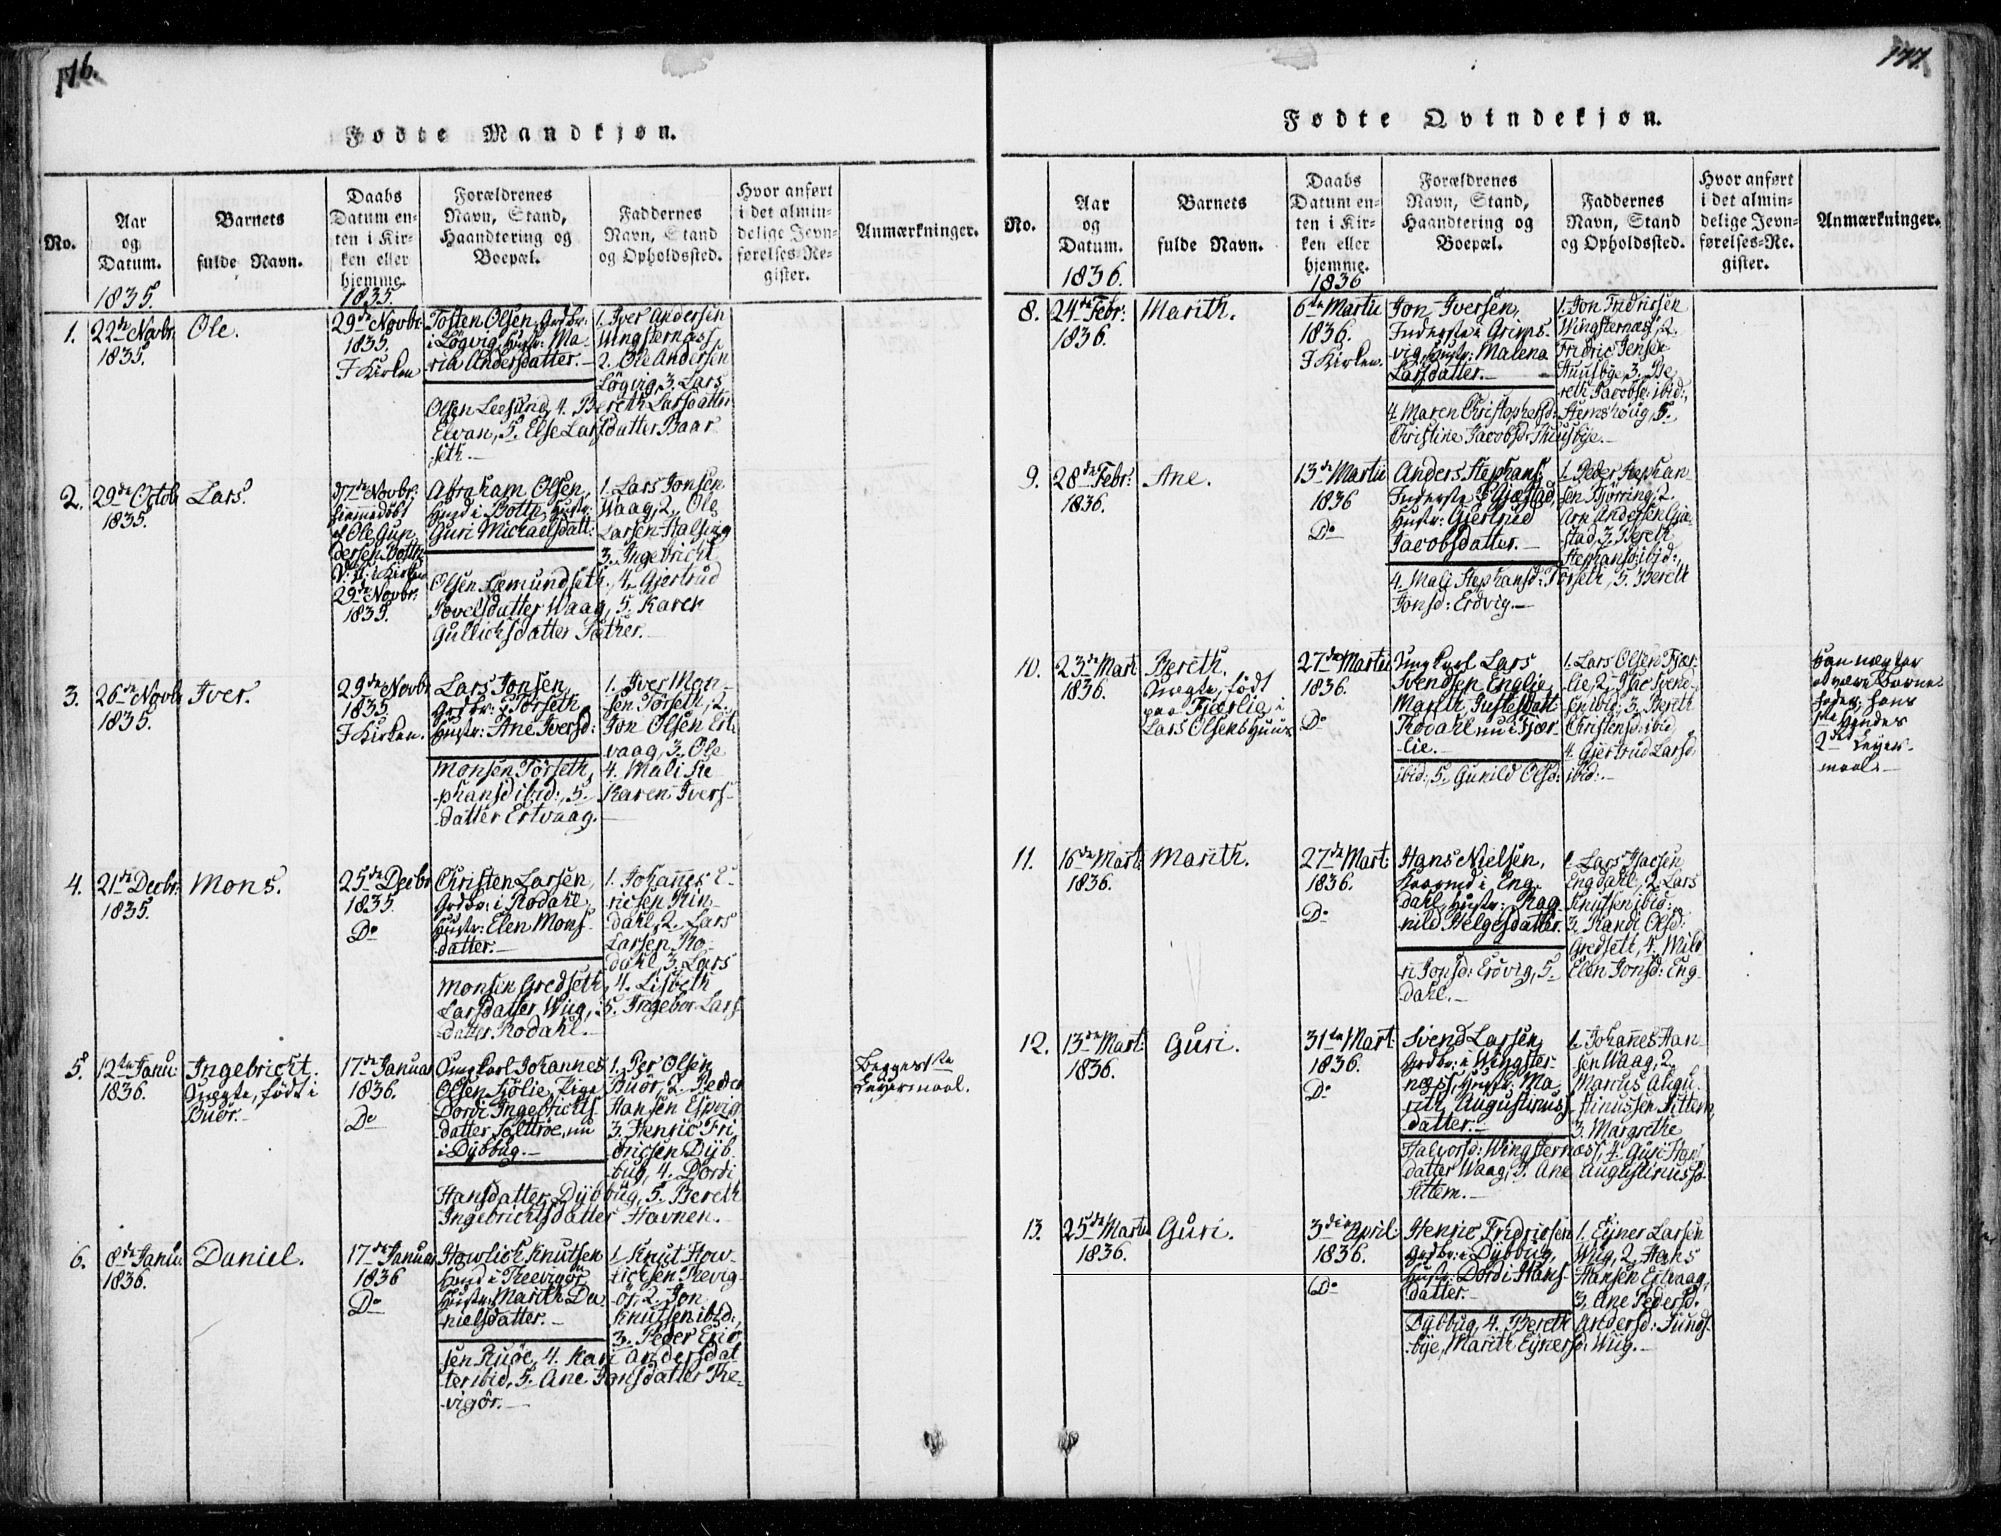 176.
Fødte Mandkjøn.
No.
Aar
og
Datum.
1835.
Barnets
fulde Navn.
Daabs
Datum en-
ten i Kir-
ken eller
hjemme.
1835.
Forældrenes
Navn, Stand,
Haandtering og
Boepæl.
Faddernes
Navn, Stand
og Opholdssted.
Hvor anført
i det almin-
delige Jevn-
førelses-Re-
gister.
Anmærkninger.
1.
22de Novbr:
1835.
Ole.
29de Novbr.
1835.
I Kirken
Tosten Olsen, Grdbr:
i Løgvig, Hustr: Ma-
ria Andersdatter.-
1. Iver Andersen
Wingsternæss,
2. Ole Andersen
Løgvig, 3. Lars
Olsen Leesund, 4. Bereth Larsdatter
Elvan, 5. Else Larsdatter Baar
seth.-
2.
29de Octob
1835.
Lars.
d 7de Novbr:
hiemmedøbt
af Ole Gun
dersen Botten
V: st: i Kirken
29de Novbr:
1835.
Abraham Olsen,
Huusmd i Botten, Hustr:
Guri Michaelsdatt:
1. Lars Jonsen
Waag, 2. Ole
Larsen Halsing
3. Ingebricht
Olsen Sæmundseth, 4. Gjertrud
Povelsdatter Waag, 5. Karen
Gullichsdatter Sæther.-
3.
26de Novb
1835.
Iver.
29de Novbr
1835
I Kirken.
Lars Jonsen,
Grdbr: i Torseth,
Hustr: Ane Iversd:
1. Iver Mon-
sen Torseth, 2.
Jon Olsen Ert
vaag, 3. Ole
Monsen Torseth, 4. Mali Ste
phansd ibid:, 5. Karen Ivers-
datter Ertvaag.
4.
21de Decbr:
1835.
Mons.
25de Decbr
1835.
Do
Christen Larsen,
Grdbr: i Rodahl,
Hustr: Elen Mons-
datter.-
1. Johannes E-
ricsen Rin-
dahl, 2. Lars
Larsen Ro-
dahl, 3. Lars
Monsen Gredseth, 4. Lisbeth
Larsdatter Wiig, 5. Ingebor Lars
datter Rodahl.-
5.
12te Janu:
1836.
Ingebricht.
Uægte, født i
Buør.-
17de Januar
1836.
Do
Ungkarl Johannes
Olsen Sjølie, Pige
Dordi Ingebrichts
datter, nu
i Dybbug.-
1. Per Olsen
Buør, 2. Peder
Hansen Espvig
3. Henric Fri
dricsen Dyb-
bug, 4. Dordi
Hansdatter Dybbug, 5. Bereth
Ingebrichtsdatter Havnen.-
Begges 1ste
Leiermaal.
6.
8de Janu.
1836.
Daniel.
17de Januar
1836
Do
Howlich Knutsen
Huusmd i Treevigør
Hustr: Marith Da
nielsdatter.-
1. Knut How-
lichsen Trevig-
ør, 2. Jon
Knutsen ibid:,
3. Peder Eric
sen Ruøe, 4. Kari Andersdat
ter ibid, 5. Ane Jonsdatter Tre-
vigør.-
177.
Fødte Qvindekjøn.
No.
Aar
og
Datum.
1836.
Barnets
fulde Navn.
Daabs
Datum en-
ten i Kir-
ken eller
hjemme.
1836
Forældrenes
Navn, Stand,
Haandtering og
Boepæl.
Faddernes
Navn, Stand
og Opholdssted.
Hvor anført
i det almin-
delige Jevn-
førelses-Re-
gister.
Anmærkninger.
8.
24de Febr:
1836.
Marith.
6te Martii
1836.
I Kirken.
Jon Iversen,
Inderste i Grips-
vig, Hustr: Malena
Larsdatter.-
1. Jon Fridricsen
Wingsternæs, 2.
Fridric Jensen
Huusbye, 3. Be
reth Jacobsd: ibid:,
4. Maren Christophersd: Stemshoug, 5.
Christine Jacobsd: Huusbye.-
9.
28de Febr:
1836.
Ane.
13de Martii
1836
Do
Anders Stephans:
Inderste Gjæstad,
Hustr: Gjertrud
Jacobsdatter.-
1. Peder Stephan-
sen Bjørring, 2.
Arn Andersen Gjæ-
stad, 3. Bereth
Stephansd: ibid:,
4. Mali Stephansd: Torseth, 5. Bereth
Jonsd: Erdvig.-
10.
23de Mart.
1836.
Bereth.
Uægte, født
paa Fjærlie i
Lars Olsens Huus
27de Martii
1836.
Do
Ungkarl Lars
Svendsen Englie,
Marith Justesdatt
Rodahl, nu i Fjær-
lie.-
1. Lars Olsen Fjær-
lie, 2. Isac Svend-
sen ibid:, 3. Bereth
Christensd: ibid,
4. Gjertrud Larsd
ibid:, 5. Gunild Olsd: ibid:.-
Han nægter
at være Barne-
fader; hans
1ste, hendes
2det Leyer-
maal.-
11.
16de Mart:
1836.
Marith.
27de Mart
1836.
Do
Hans Nielsen,
Huusmd i Eng-
dahl, Hustr: Rag-
nild Helgesdatter.
1. Lars Isacsen
Engdahl, 2. Lars
Knutsen ibid:
3. Randi Olsd:
Gredseth, 4. Mild
ri Jonsd: Erdvig, 5. Elen Jonsd: Eng-
dahl.-
12.
13de Mart:
1836.
Guri.
31te Mart
1836.
Do
Svend Larsen,
Grdbr: i Wingster-
næss, Hustr: Ma
rith Augustinuss-
datter.-
1. Johannes Han-
sen Waag, 2.
Marcus Augu-
stinussen Sittem,
3. Margrethe
Halvorsd: Wingsternæss, 4. Guri Hans
datter Waag, 5. Ane Augustinussd.
Sittem.-
13.
25de Martii
1836.
Guri.
3die April:
1836.
Do
Henric Fridricsen
Grdbr: i Dybbug,
Hustr: Dordi Hans-
datter.-
1. Ejner Larsen
Wiig, 2. Hans
Hansen Ertvaag,
3. Ane Pedersd.
Dybbug, 4. Bereth Andersd:
bye, Marith Ejnersd: Wiig.-